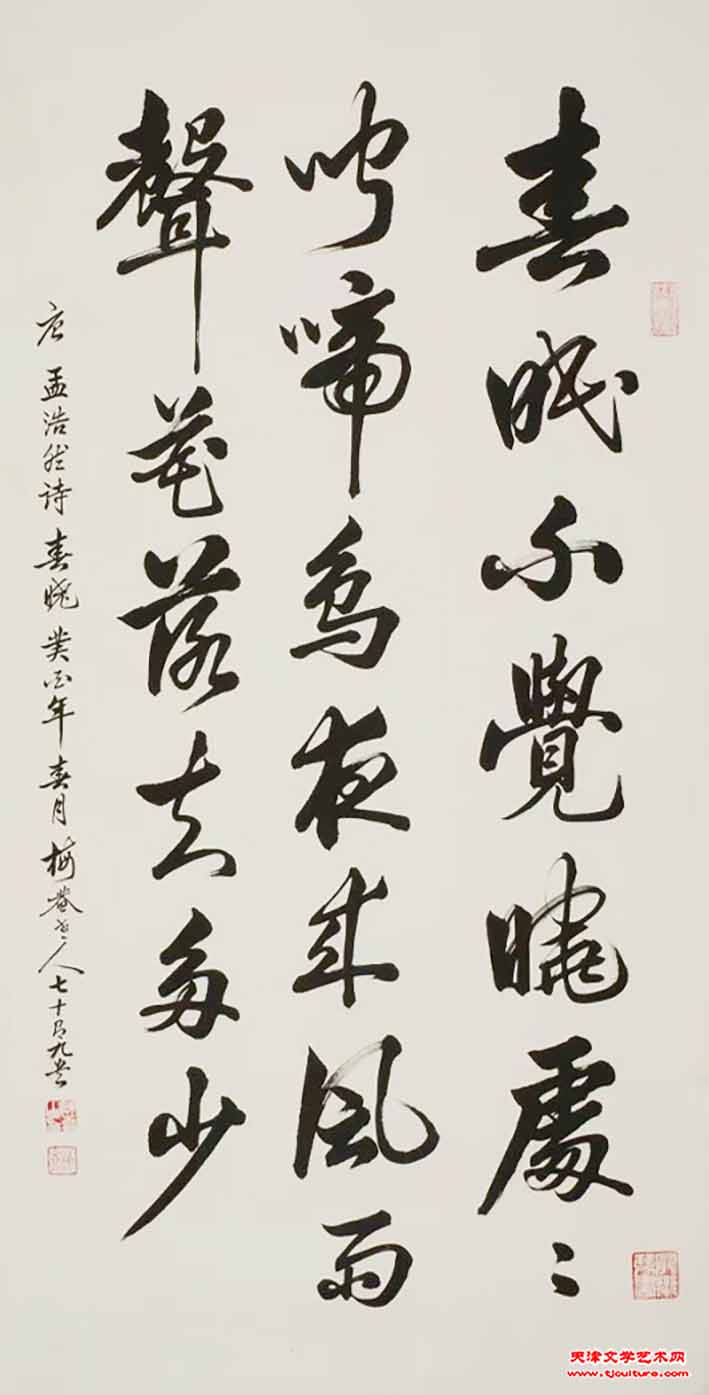 春眠不覺曉處〻
聞啼鳥夜来風雨
聲花落知多少
唐 孟浩然诗 春晓 癸酉年春月 梅菴人七十有九书
天津文学艺术网
www.tjculture.com